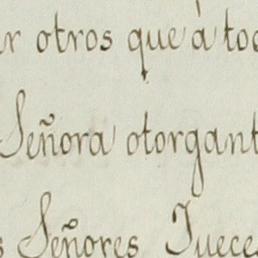 r otros que a tod
Señora otorgant
s Señores Juece